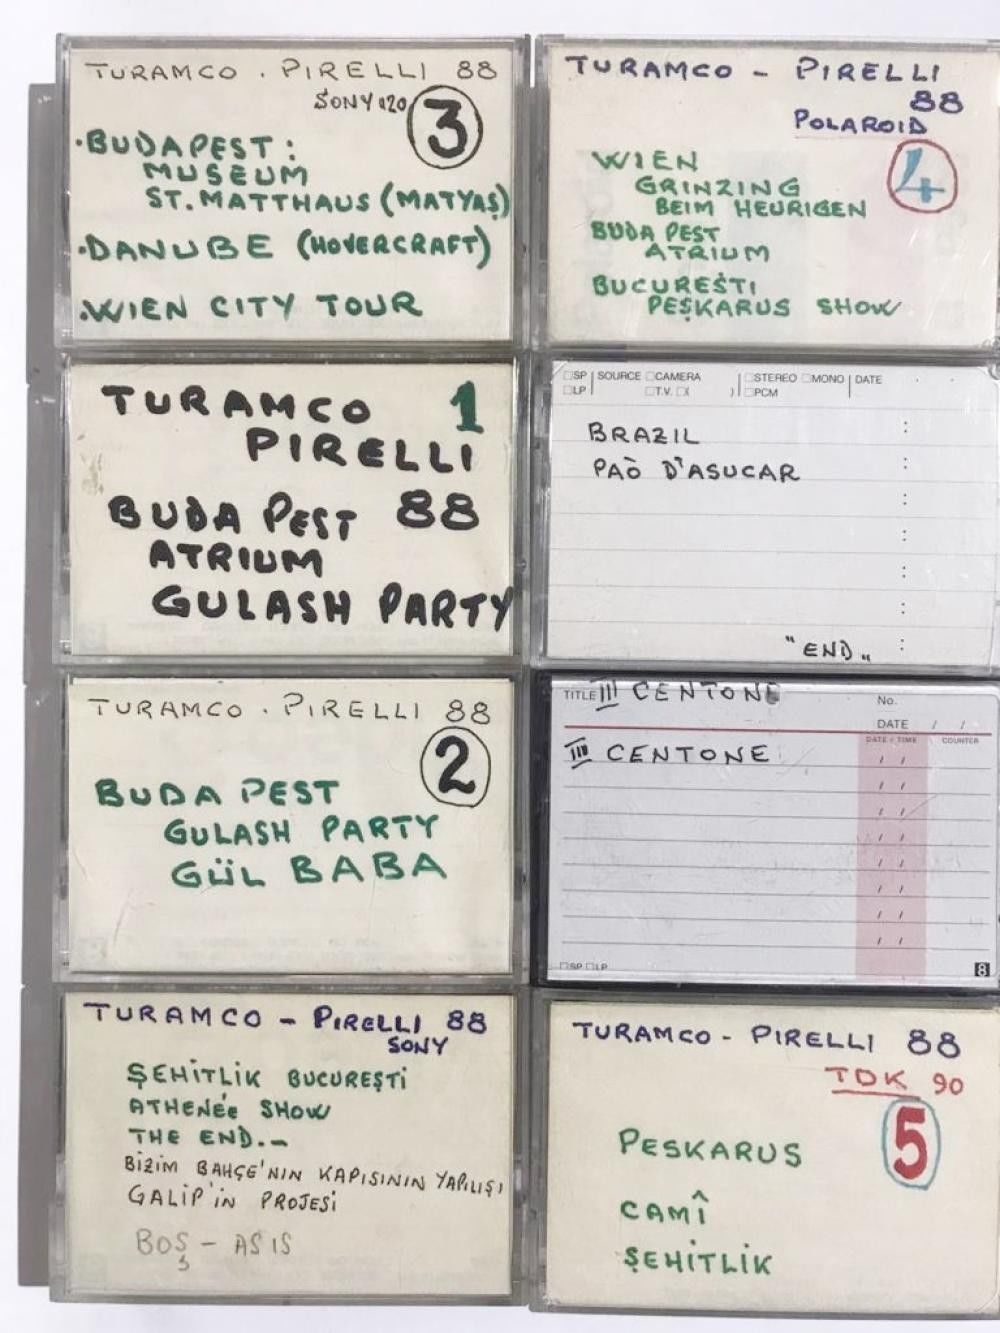 TURAMCO . PIRELLI 88
SONY 120
3
·BUDAPEST:
MUSEUM
ST. MATTHAUS (MATYAŞ)
·DANUBE (HOVERCRAFT)
·WIEN CITY TOUR
TURAMCO - PIRELLI
88
POLAROID
4
WIEN
GRINZING
BEIM HEURIGEN
BUDAPEST
ATRIUM
BUCUREŞTI
PEŞKARUS SHOW
TURAMCO 1
PIRELLI
BUDAPEST 88
ATRIUM
GULASH PARTY
□SP SOURCE □CAMERA □STEREO □MONO DATE
□LP □T.V. □( ) □PCM
BRAZIL
PAÒ D'ASUCAR
"END"
TURAMCO . PIRELLI 88
2
BUDAPEST
GULASH PARTY
GÜL BABA
TITLE III CENTONE No.
DATE / /
DATE / TIME COUNTER
III CENTONE / /
/ /
/ /
/ /
/ /
/ /
/ /
/ /
□SP □LP 8
TURAMCO - PIRELLI 88
SONY
ŞEHİTLİK BUCUREŞTİ
ATHENÉE SHOW
THE END.-
BİZİM BAHÇE'NIN KAPISININ YAPILIŞI
GALİP'İN PROJESİ
BOŞ - ASIS
TURAMCO - PIRELLI 88
TDK 90
5
PESKARUS
CAMÎ
ŞEHİTLİK